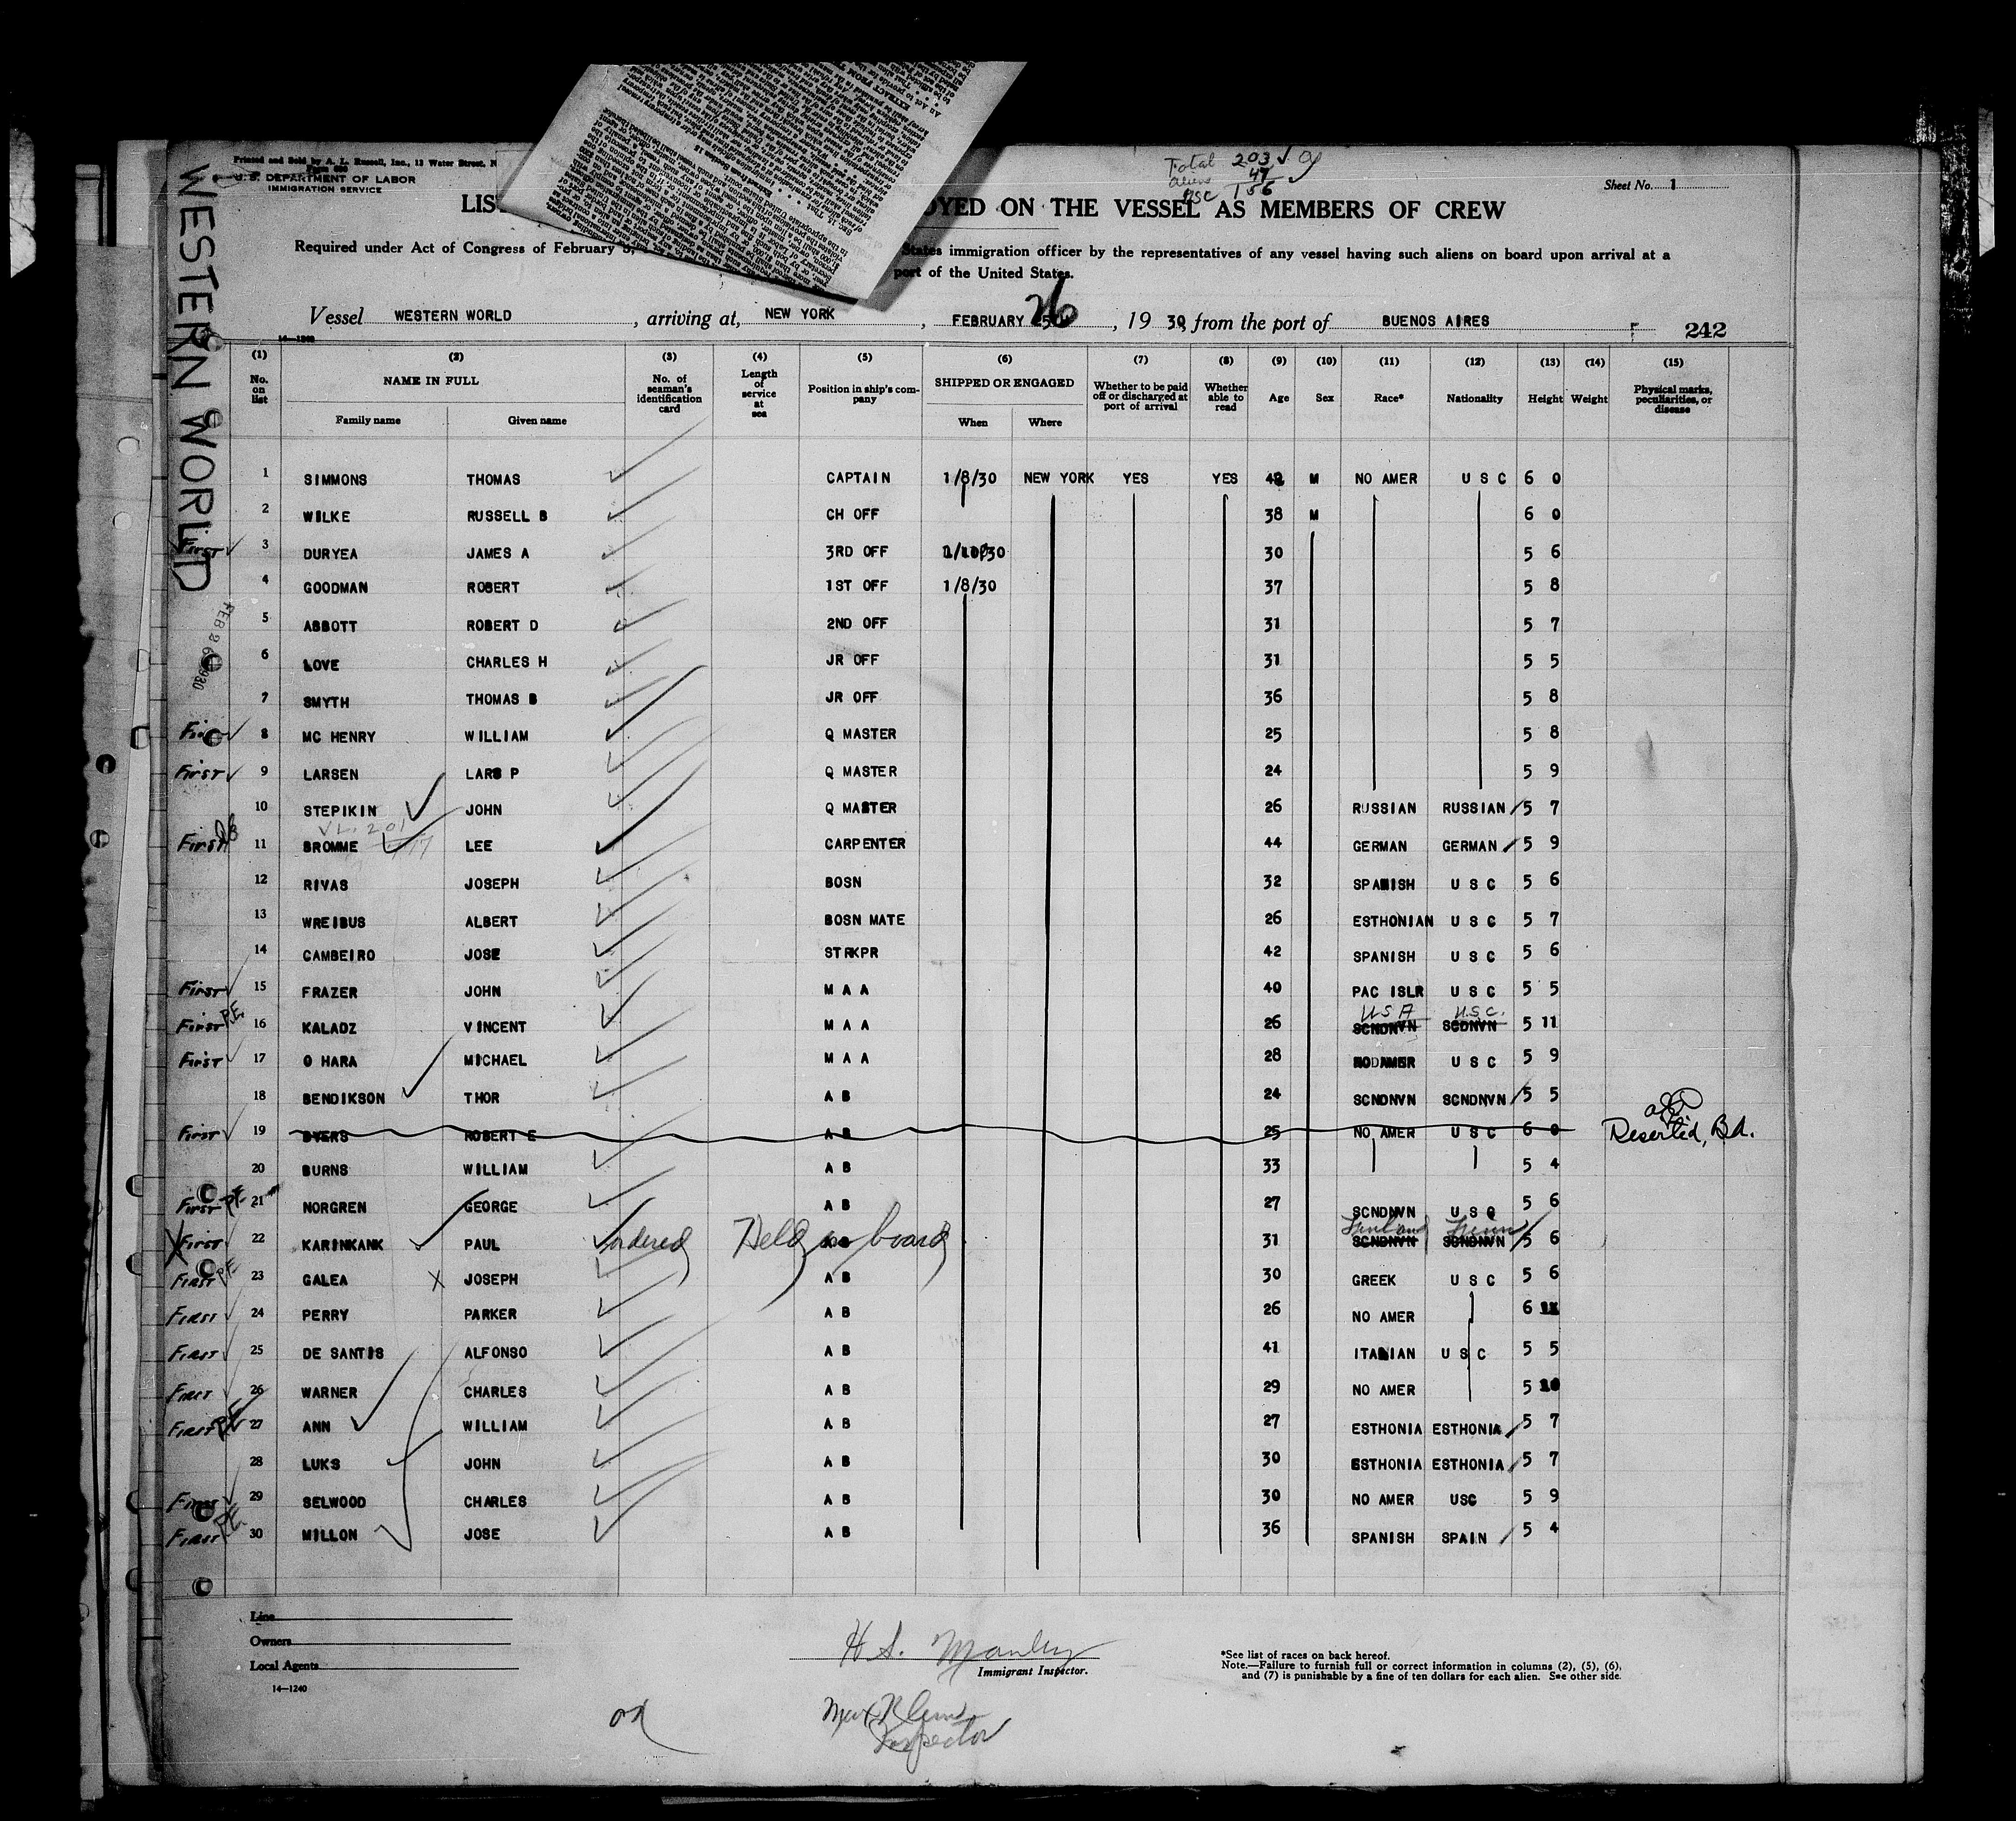 Printed and Sold by A. L. Russell, Inc., 12 Water Street, N
U. S. DEPARTMENT OF LABOR
IMMIGRATION SERVICE
Total 203
aliens 47
USC 156
Sheet No. 1
WESTERN WORLD
LIS OYED ON THE VESSEL AS MEMBERS OF CREW
Required under Act of Congress of February States immigration officer by the representatives of any vessel having such aliens on board upon arrival at a
port of the United States.
Vessel WESTERN WORLD, arriving at, NEW YORK, FEBRUARY 26, 1930, from the port of BUENOS AIRES
14—1240
242
(1) (2) (3) (4) (5) (6) (7) (8) (9) (10) (11) (12) (13) (14) (15)
No. on list NAME IN FULL No. of seaman's identification card Length of service at sea Position in ship's company SHIPPED OR ENGAGED Whether to be paid off or discharged at port of arrival Whether able to read Age Sex Race* Nationality Height Weight Physical marks, peculiarities, or disease
Family name Given name When Where
1 SIMMONS THOMAS CAPTAIN 1/8/30 NEW YORK YES YES M NO AMER U S C 6 0
2 WILKE RUSSELL B CH OFF 38 M 6 0
First 3 DURYEA JAMES A 3RD OFF 1/10/30 30 5 6
4 GOODMAN ROBERT 1ST OFF 1/8/30 37 5 8
5 ABBOTT ROBERT D 2ND OFF 31 5 7
6 LOVE CHARLES H JR OFF 31 5 5
FEB 26 1930
7 SMYTH THOMAS B JR OFF 36 5 8
First 8 MC HENRY WILLIAM Q MASTER 25 5 8
First 9 LARSEN LARS P Q MASTER 24 5 9
10 STEPIKIN JOHN Q MASTER 26 RUSSIAN RUSSIAN 5 7
First 11 BROMME LEE CARPENTER 44 GERMAN GERMAN 5 9
12 RIVAS JOSEPH BOSN 32 SPANISH U S C 5 6
13 WREIBUS ALBERT BOSN MATE 26 ESTHONIAN U S C 5 7
14 CAMBEIRO JOSE STRKPR 42 SPANISH U S C 5 6
First 15 FRAZER JOHN M A A 40 PAC ISLR U S C 5 5
USA U.S.C.
First P.E. 16 KALADZ VINCENT M A A 26 SCNDNVN SCDNVN 5 11
First 17 O HARA MICHAEL M A A 28 NO AMER U S C 5 9
18 BENDIKSON THOR A B 24 SCNDNVN SCNDNVN 5 5
First 19 BYERS ROBERT E A B 25 NO AMER U S C 6 0 Deserted, B.A.
20 BURNS WILLIAM A B 33 5 4
First P.E. 21 NORGREN GEORGE A B 27 SCNDNVN U S C 5 6
Finland Finn
X First 22 KARINKANK PAUL ordered Held on board A B 31 SCNDNVN SCNDNVN 5 6
First P.E. 23 GALEA X JOSEPH A B 30 GREEK U S C 5 6
First 24 PERRY PARKER A B 26 NO AMER 6
First 25 DE SANTIS ALFONSO A B 41 ITALIAN U S C 5 5
First 26 WARNER CHARLES A B 29 NO AMER 5 10
First P.E. 27 ANN WILLIAM A B 27 ESTHONIA ESTHONIA 5 7
28 LUKS JOHN A B 30 ESTHONIA ESTHONIA 5 7
First 29 SELWOOD CHARLES A B 30 NO AMER USC 5 9
First P.E. 30 MILLON JOSE A B 36 SPANISH SPAIN 5 4
Line
Owners
Local Agents
14—1240
H. S. Manley
Immigrant Inspector.
Inspector
*See list of races on back hereof.
Note.—Failure to furnish full or correct information in columns (2), (5), (6),
and (7) is punishable by a fine of ten dollars for each alien. See other side.